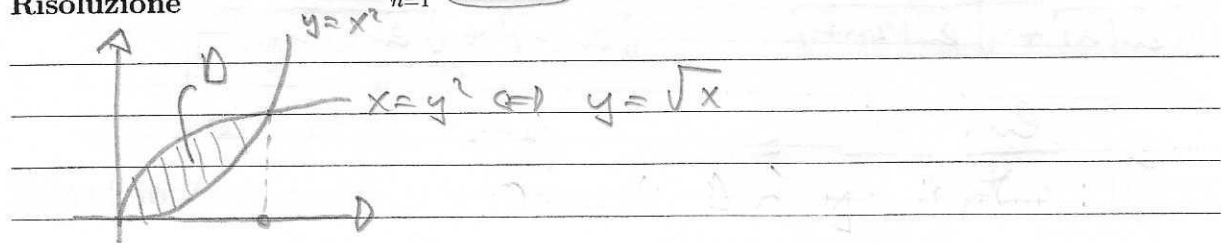 Risoluzione
n=1
y = x²
D
x = y² ⇔ y = √x